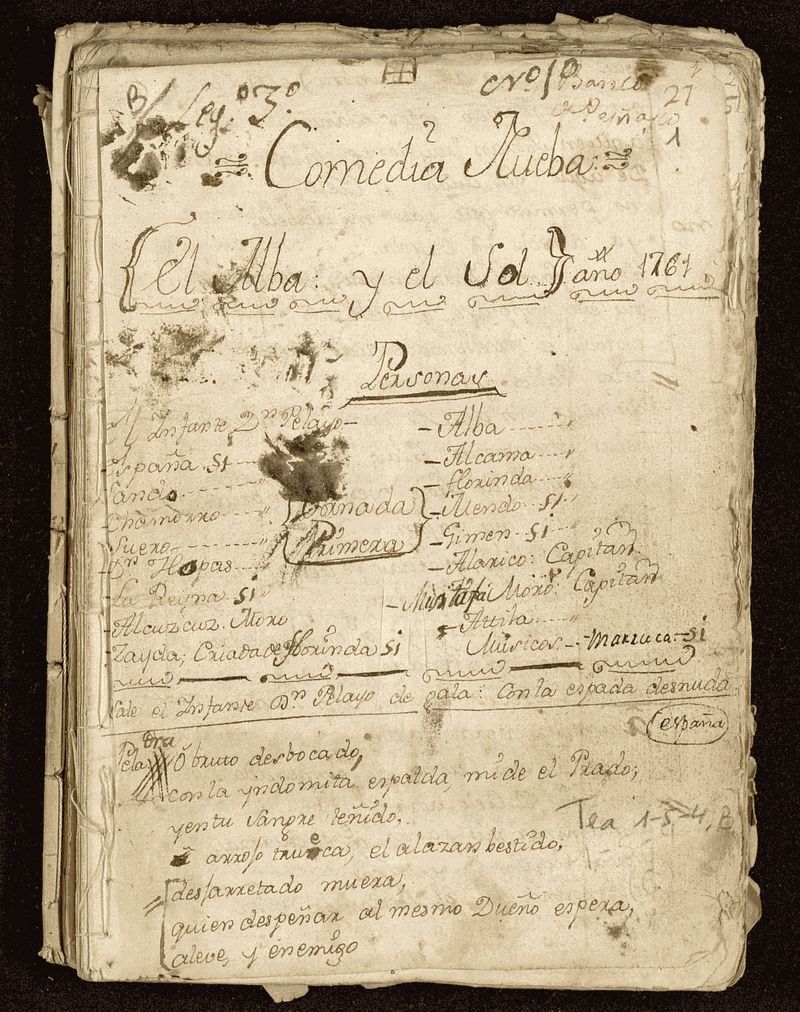 B/
Leg.º 3.º
Nº 1º Banco
21
1
Comedia Nueba:
El Alba: y el Sol año 1761
Personas
El Infante Dn Pelayo
España si
Sando
Chamorro
Suero
Dn Hopas
La Reyna si
Alcuzcuz. Moro
Zayda, Criada de florinda si
Jornada
Primera
Alba
Alcama
florinda
Mendo si
Gimen si
Alarico: Capitan
Mustafa Moro: Capitan
Attila
Musicos Marzuca si
Sale el Infante Dn Pelayo de gala: Con la espada desnuda
españa
Pela Ô bruto desbocado,
con la yndomita espalda mide el Prado;
yentu sangre teñido,
arroso trueca, el alazan bestido;
Tea 1-5-4, B
desjarretado muera,
quien despeñar al mesmo Dueño espera,
aleve, y enemigo